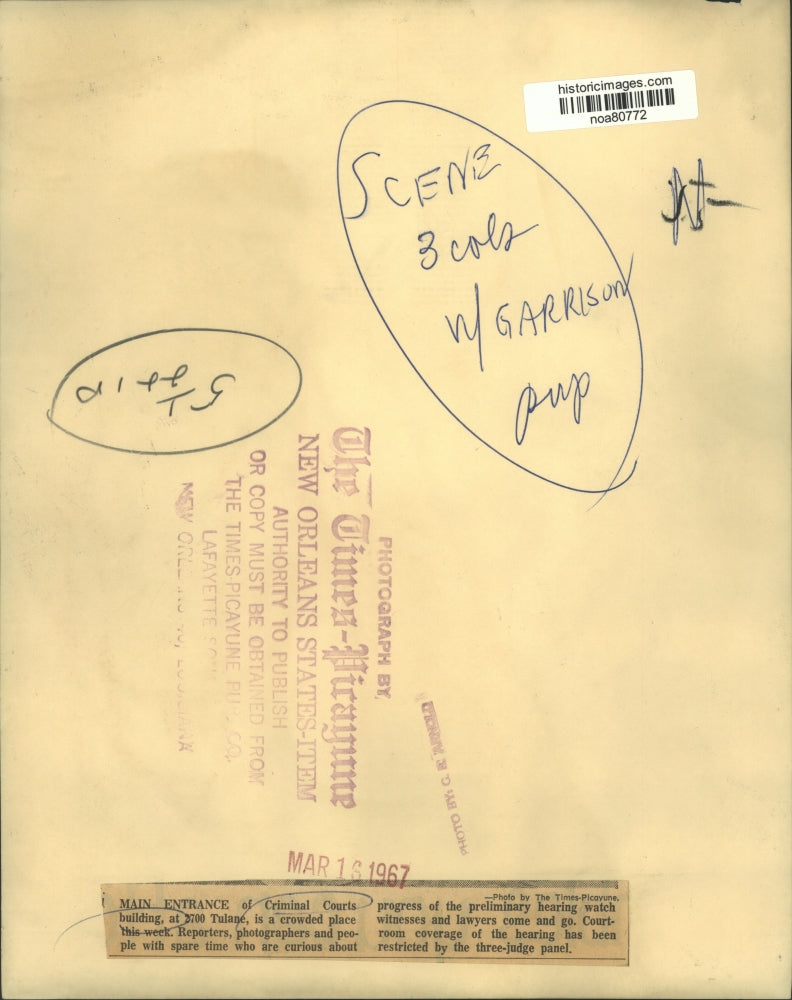 historicimages.com
noa80772
SCENE
3 cols
W/ GARRISON
pup
PHOTOGRAPH BY
The Times-Picayune
NEW ORLEANS STATES-ITEM
AUTHORITY TO PUBLISH
OR COPY MUST BE OBTAINED FROM
THE TIMES-PICAYUNE PUB. CO.
LAFAYETTE
NEW
PHOTO BY: C. E.
MAR 16 1967
—Photo by The Times-Picayune.
MAIN ENTRANCE of Criminal Courts
building, at 2700 Tulane, is a crowded place
this week. Reporters, photographers and peo-
ple with spare time who are curious about
progress of the preliminary hearing watch
witnesses and lawyers come and go. Court-
room coverage of the hearing has been
restricted by the three-judge panel.